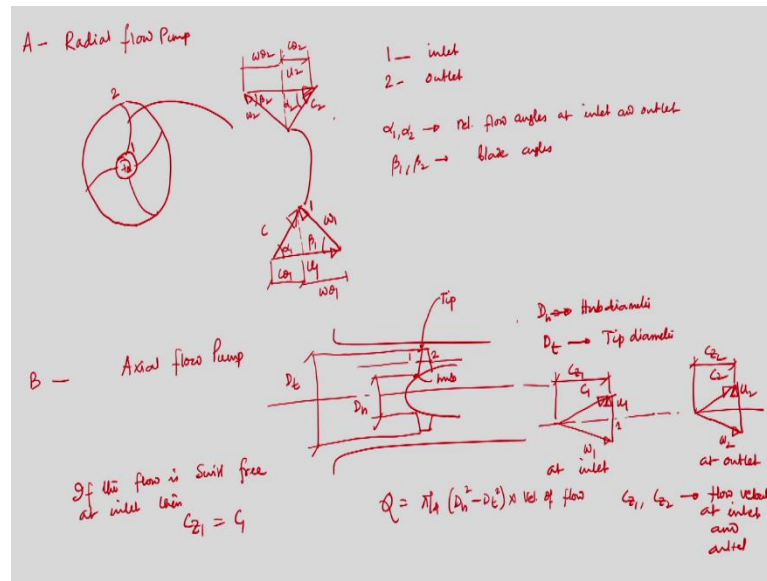 A - Radial flow Pump
2
1
wθ2 cθ2
U2
β2 α2 C2
w2
1 - inlet
2 - outlet
α1, α2 → rel. flow angles at inlet and outlet
β1, β2 → blade angles
1
C w1
α1 β1
cθ1 U1
wθ1
B - Axial flow Pump
Tip
1 2
hub
Dt
Dh
Dh → Hub diameter
Dt → Tip diameter
Cz1
C1 U1
w1
at inlet
Cz2
C2 U2
w2
at outlet
If the flow is Swirl free
at inlet then
Cz1 = C1
Q = π/4 (Dh² - Dt²) x vel. of flow
Cz1, Cz2 → flow
at inlet
and